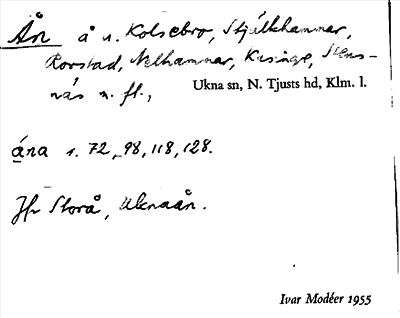 Ån å n. Kolsebro, Stjälkhammar,
Rorstad, Nelhammar, Kasinge, Stens-
näs m. fl.,
Ukna sn, N. Tjusts hd, Klm. l.
ána s. 72, 98, 118, 128.
Jfr Storå, Uknaån.
Ivar Modéer 1955